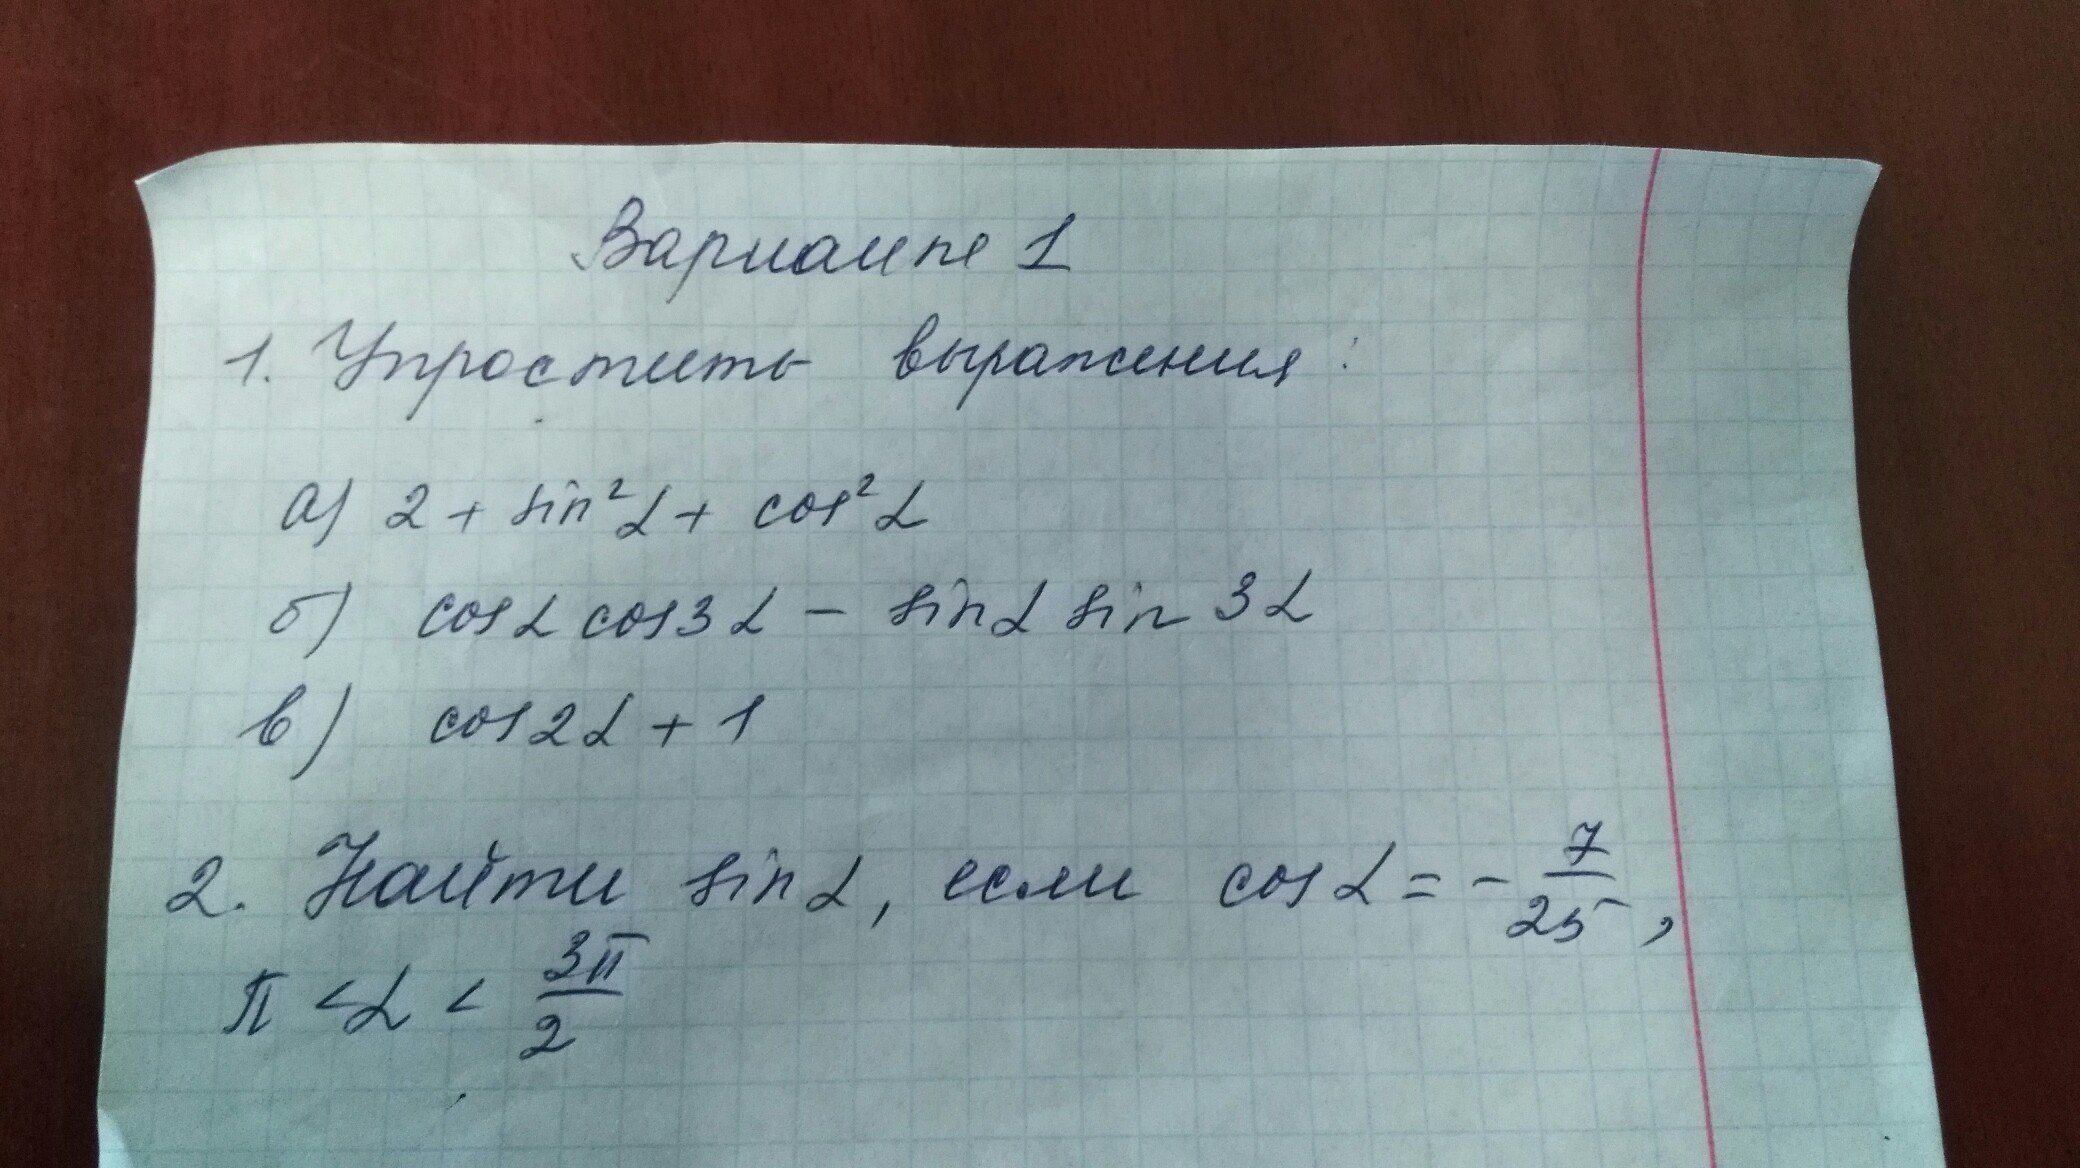 Вариант 1
1. Упростить выражения:
а) 2 + sin²α + cos²α
б) cosα cos3α − sinα sin 3α
в) cos2α + 1
2. Найти sinα, если cosα = −7/25,
π < α < 3π/2